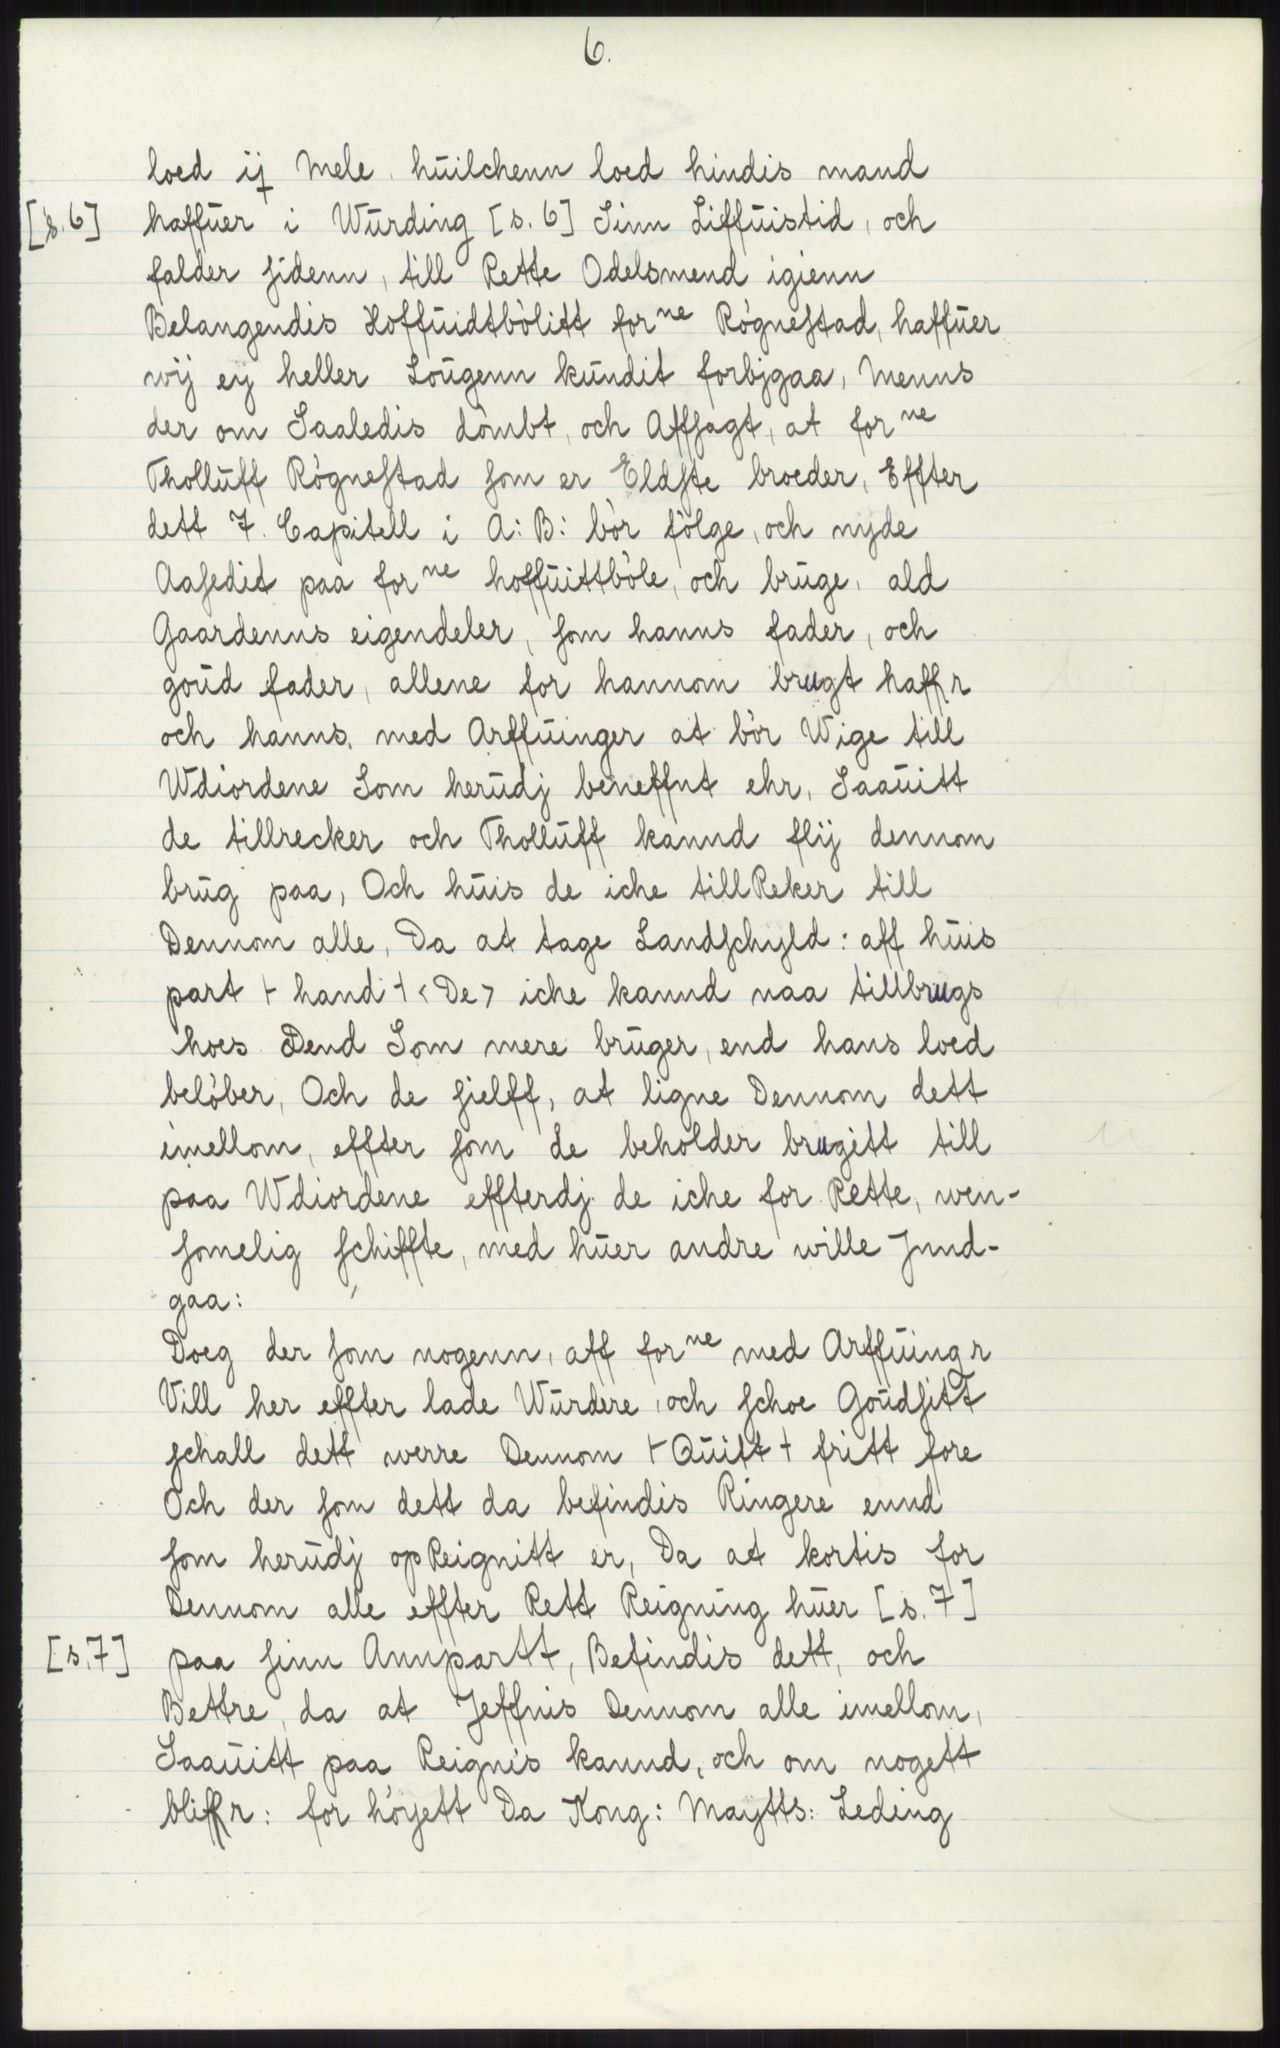 6.
loed ij mele, huilchenn loed hindis mand
[s. 6] haffuer i Wurding [s. 6] Sinn Liffuistid, och
falder sidenn, till Rette Odelsmend igienn
Belangendis Hoffuidtbølitt for ne Røgnestad, haffuer
wij ey heller Lougenn kundit forbjgaa, Menns
der om Saaledis dømbt, och Affsagt, at for ne
Tholluff Røgnestad som er Eldste broeder, Effter
dett 7. Capitell i A: B: bør følge, och nyde
Aasedit paa for ne hoffuittbøle, och bruge, ald
Gaardenns eigendeler, som hanns fader, och
goud fader, allene for hannom brugt haffr
och hanns, med Arffuinger at bør Wige till
Wdiordene Som herudj beneffnt ehr, Saauitt
de tillrecker och Tholluff kannd flij dennom
brug paa, Och huis de iche tillReker till
Dennom alle, Da at tage Landschyld: aff huis
part ⊢ hand ⊣ <De> iche kannd naa tillbrugs
hoes Dend Som mere bruger, end hans loed
beløber, Och de sielff, at ligne Dennom dett
imellom, effter som de beholder brugitt till
paa Wdiordene effterdj de iche for Rette, wen-
somelig schiffte, med huer andre wille Jnnd-
gaa:
Doeg der som nogenn, aff for ne med Arffuingr
Vill her effter lade Wurdere, och schoe Goudsitt
schall dett werre Dennom ⊢ Quitt ⊣ fritt fore
Och der som dett da befindis Ringere ennd
som herudj opReignitt er, Da at kortis for
Dennom alle effter Rett Reigning huer [s. 7]
[s. 7] paa sinn Annpartt, Befindis dett, och
Bettre, da at Jeffnis Dennom alle imellom,
Saauitt paa Reignis kannd, och om nogett
bliffr: for høyett Da Kong: Maytts: Leding